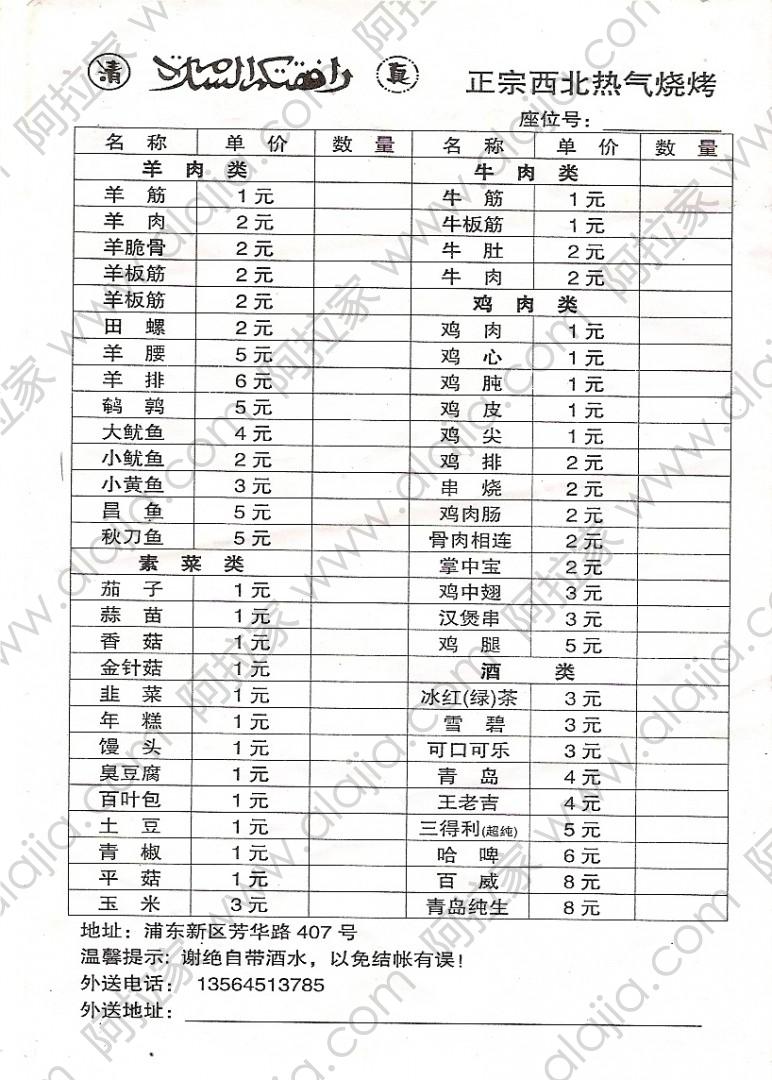 清 真 正宗西北热气烧烤
座位号：
名 称 单 价 数 量 名 称 单 价 数 量
羊 肉 类 牛 肉 类
羊 筋 1元 牛 筋 1元
羊 肉 2元 牛板筋 1元
羊脆骨 2元 牛 肚 2元
羊板筋 2元 牛 肉 2元
羊板筋 2元 鸡 肉 类
田 螺 2元 鸡 肉 1元
羊 腰 5元 鸡 心 1元
羊 排 6元 鸡 肫 1元
鹌 鹑 5元 鸡 皮 1元
大鱿鱼 4元 鸡 尖 1元
小鱿鱼 2元 鸡 排 2元
小黄鱼 3元 串 烧 2元
昌 鱼 5元 鸡肉肠 2元
秋刀鱼 5元 骨肉相连 2元
素 菜 类 掌中宝 2元
茄 子 1元 鸡中翅 3元
蒜 苗 1元 汉煲串 3元
香 菇 1元 鸡 腿 5元
金针菇 1元 酒 类
韭 菜 1元 冰红(绿)茶 3元
年 糕 1元 雪 碧 3元
馒 头 1元 可口可乐 3元
臭豆腐 1元 青 岛 4元
百叶包 1元 王老吉 4元
土 豆 1元 三得利(超纯) 5元
青 椒 1元 哈 啤 6元
平 菇 1元 百 威 8元
玉 米 3元 青岛纯生 8元
地址：浦东新区芳华路 407 号
温馨提示: 谢绝自带酒水，以免结帐有误!
外送电话： 13564513785
外送地址：
阿拉家 www.alajia.com